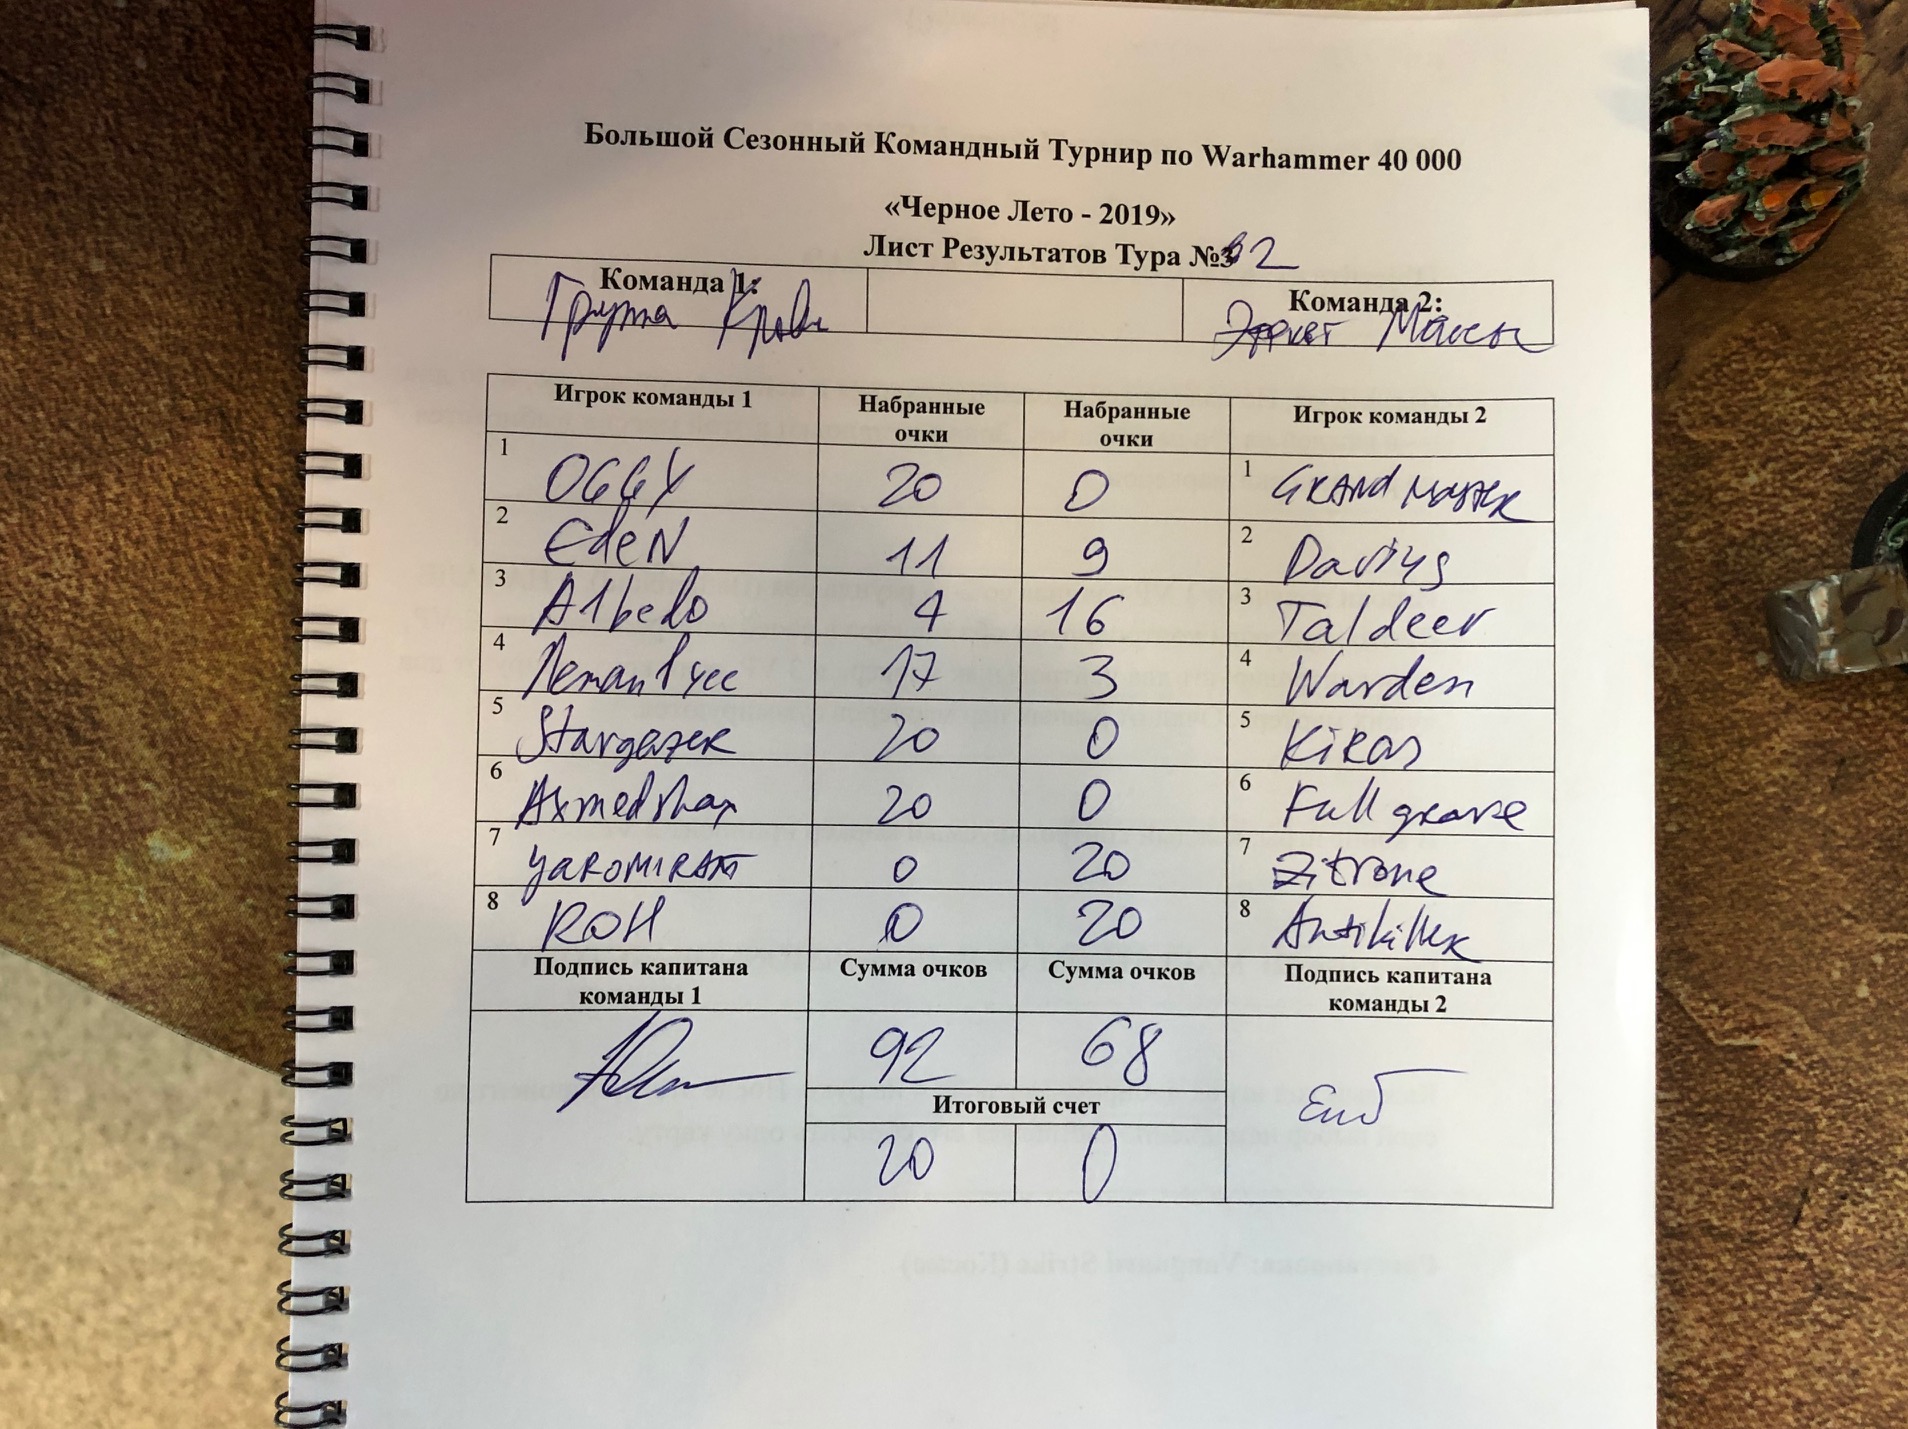 Большой Сезонный Командный Турнир по Warhammer 40 000
«Черное Лето - 2019»
Лист Результатов Тура №3 2
Команда 1: Команда 2:
Группа Крови Эффект Массы
Игрок команды 1 Набранные очки Набранные очки Игрок команды 2
1 OGGY 20 0 1 GRAND MASTER
2 EdeN 11 9 2 Darius
3 Albedo 4 16 3 Taldeer
4 Леман Русс 17 3 4 Warden
5 Stargazer 20 0 5 Kikas
6 20 0 6 Fullgrave
7 YAROMIRATT 0 20 7 Zitrone
8 ROH 0 20 8 Antikiller
Подпись капитана команды 1 Сумма очков Сумма очков Подпись капитана команды 2
92 68
Итоговый счет
20 0